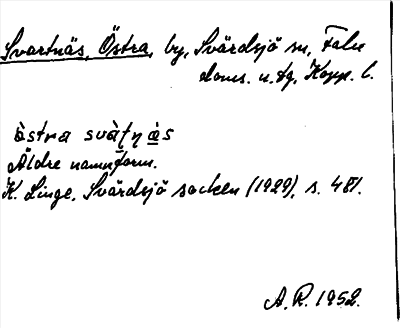 Svartnäs, Östra, by, Svärdsjö sn, Falu
doms. n. tg, Kopp. l.
àstra svàt̩n̩ às
Äldre namnform.
K. Linge, Svärdsjö socken (1929), s. 481.
A. R. 1952.